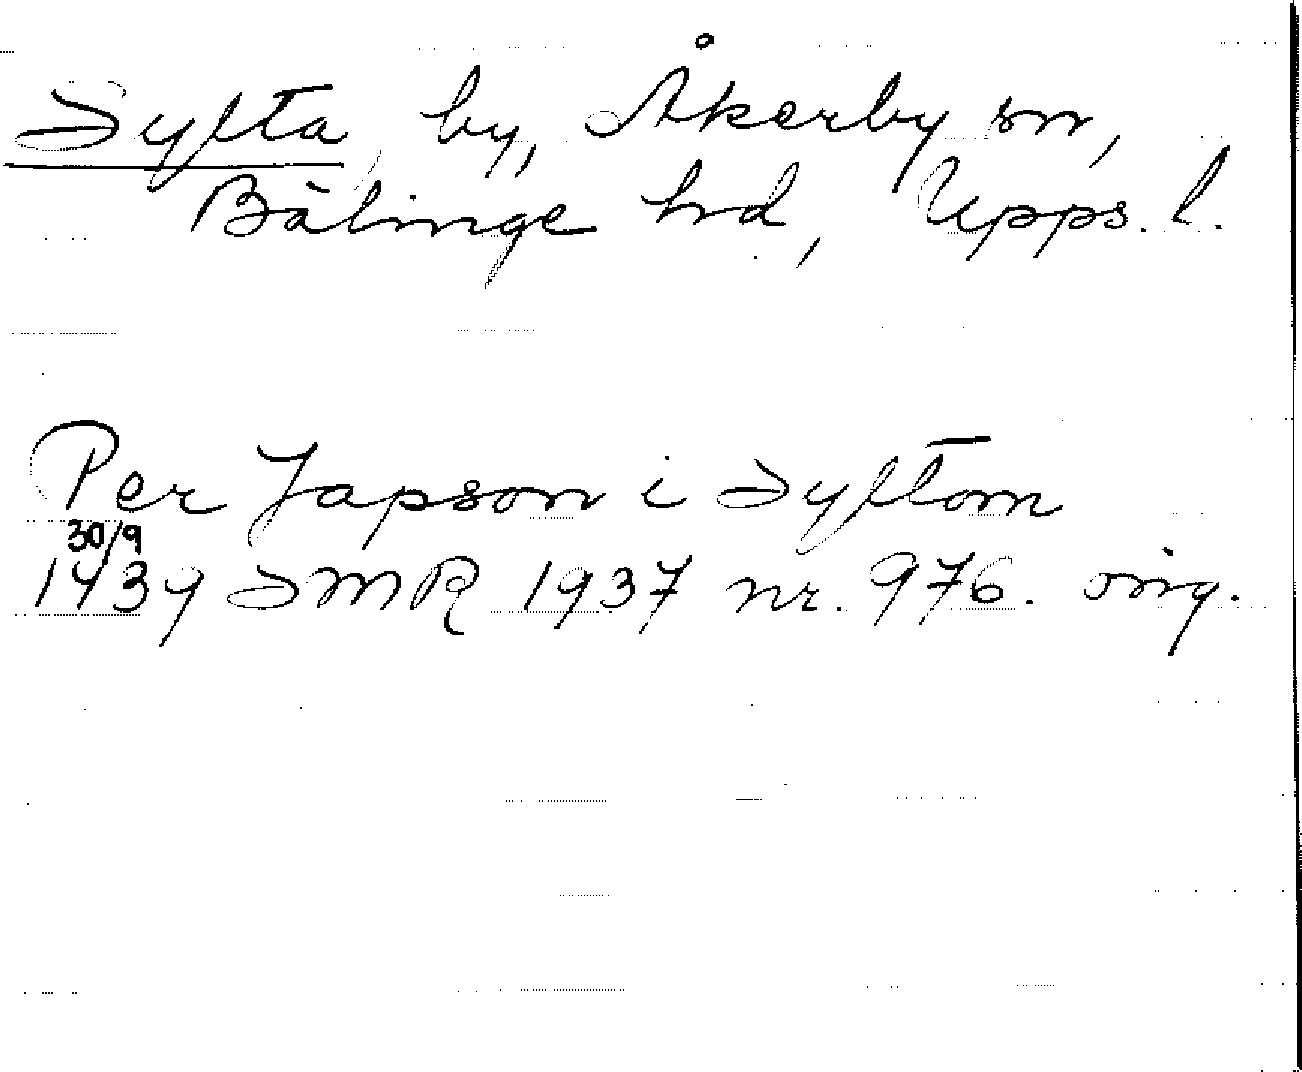 Syfta by, Åkerby sn,
Bälinge hd, Upps. l.
Per Japson i Syftom
30/9
1439 SMR 1937 nr. 976. orig.